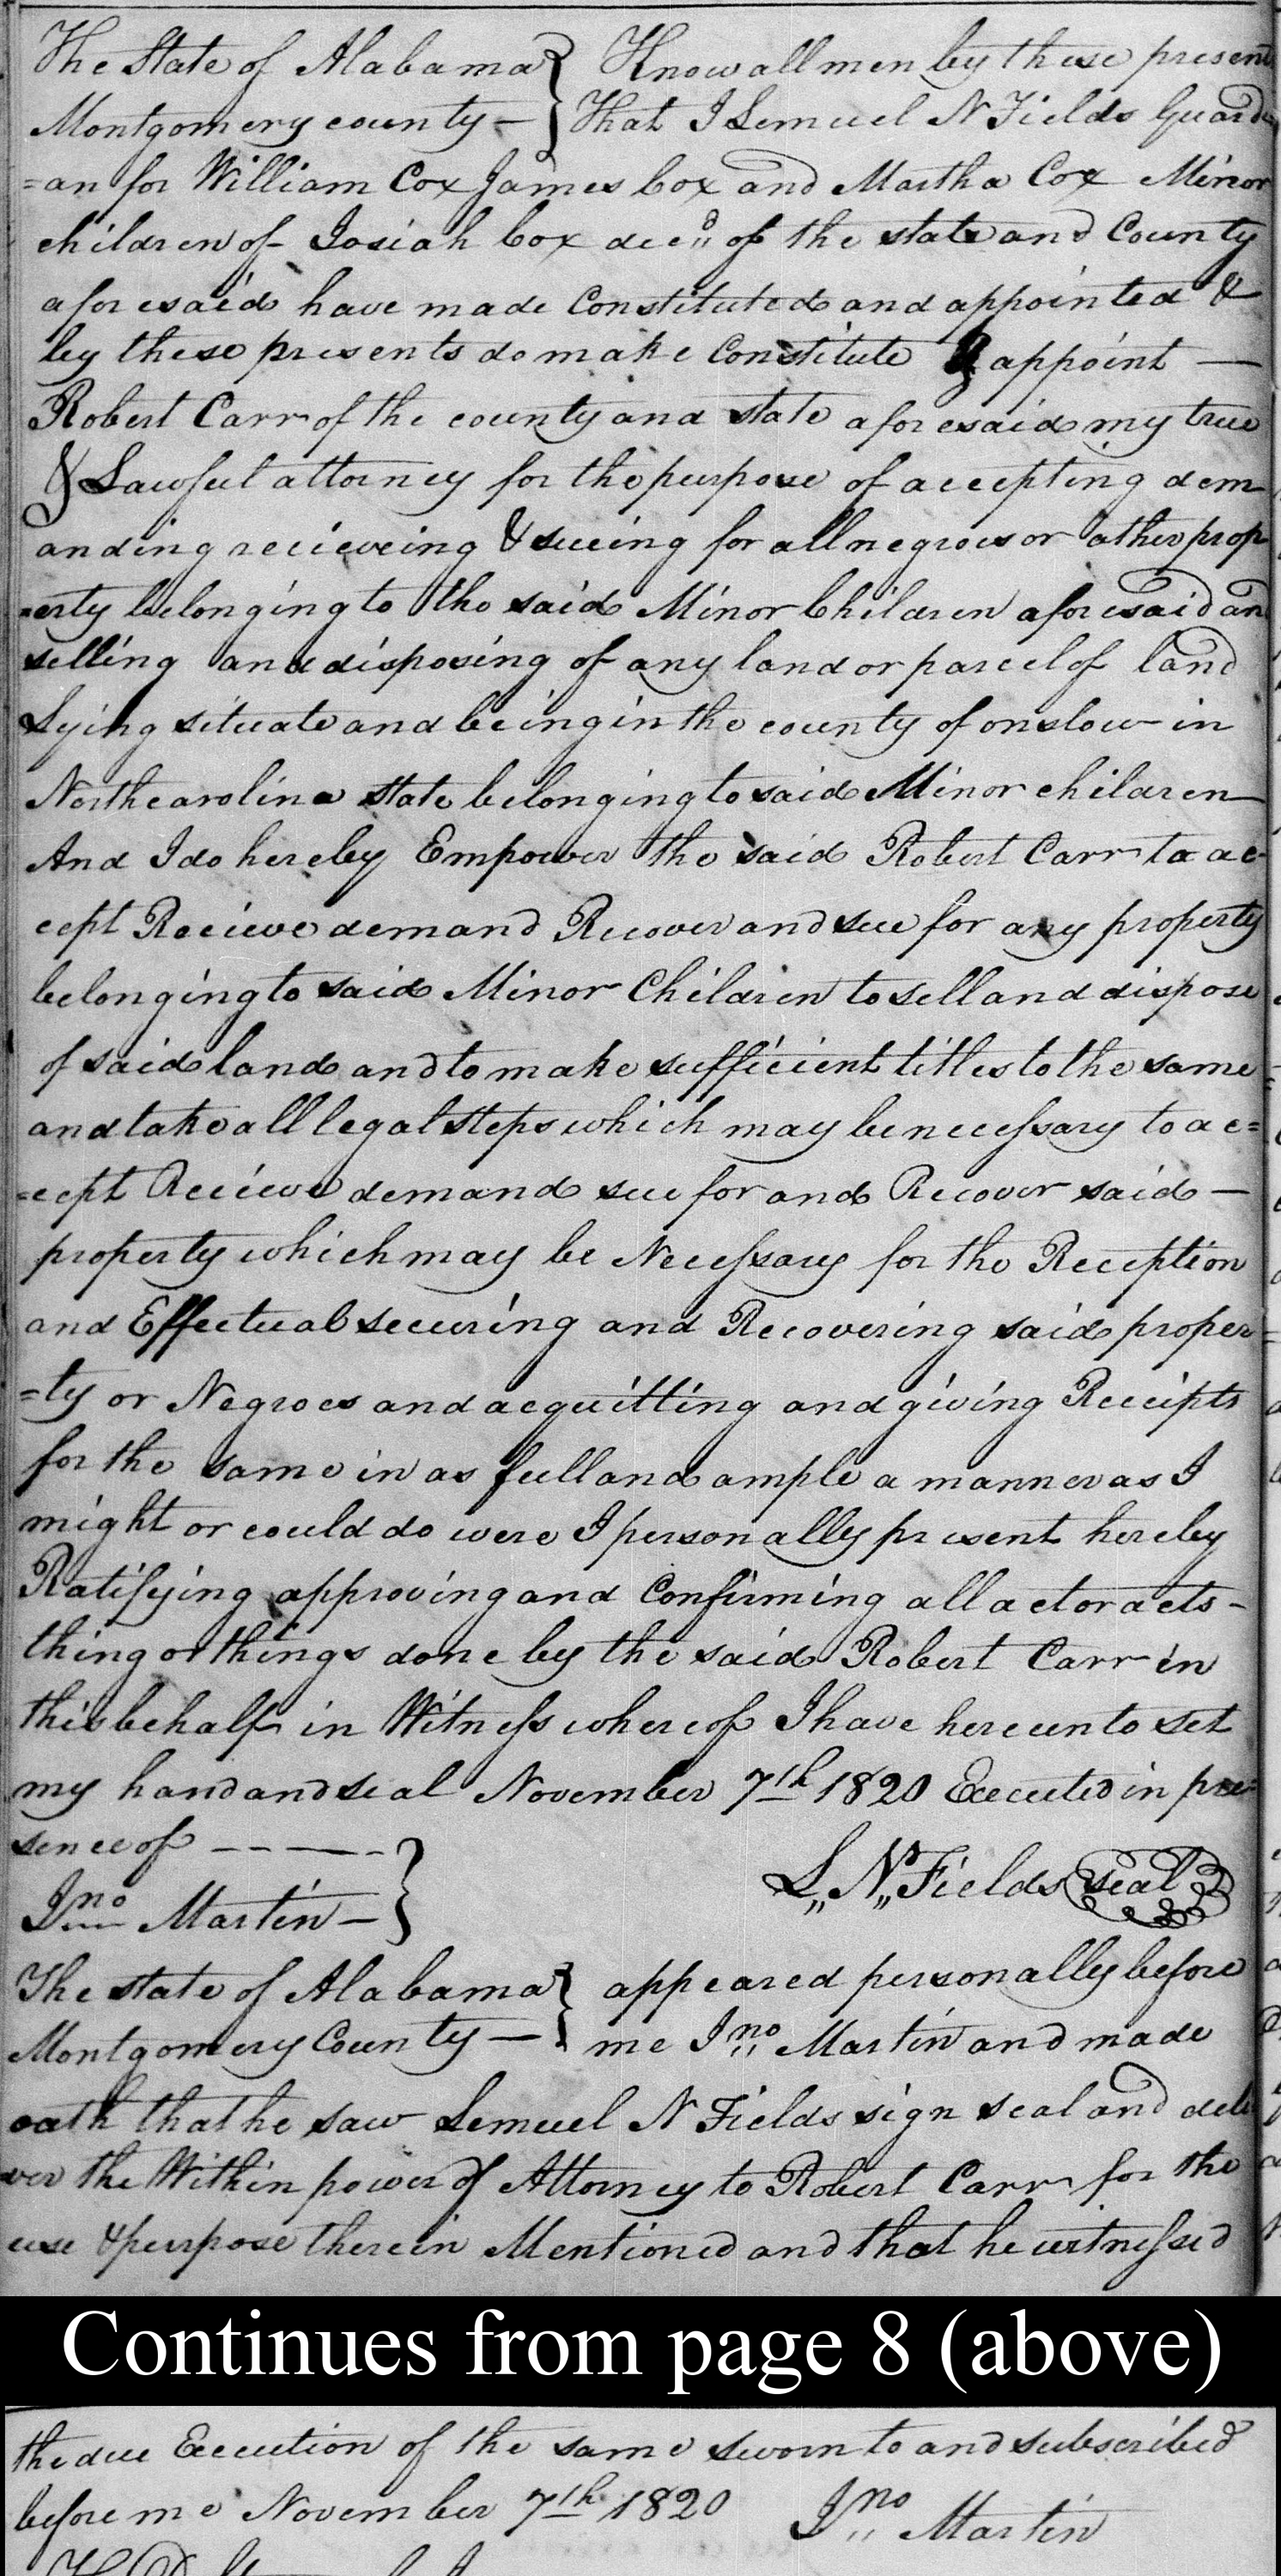 The State of Alabama } Know all men by these present
Montgomery county — } That I Lemuel N Fields Guardi
=an for William Cox James Cox and Martha Cox Minor
children of Josiah Cox decd of the state and County
aforesaid have made Constituted and appointed &
by these presents do make Constitute & appoint —
Robert Carr of the county and state aforesaid my true
& Lawful attorney for the purpose of accepting dem
anding recieveing & sueing for all negroes or other prop
=erty belonging to the said Minor Children aforesaid an
selling and disposing of any land or parcel of land
Lying situate and being in the county of onslow in
North carolina state belonging to said Minor children
And I do hereby Empower the said Robert Carr to ac-
cept Recieve demand Recover and sue for any property
belonging to said Minor Children to sell and dispose
of said land and to make sufficient titles to the same
and take all legal steps which may be necessary to ac=
=cept Recieve demand sue for and Recover said —
property which may be Necessary for the Reception
and Effectual securing and Recovering said proper=
=ty or Negroes and acquitting and giving Receipts
for the same in as full and ample a manner as I
might or could do were I personally present hereby
Ratifying approving and Confirming all act or acts -
thing or things done by the said Robert Carr in
this behalf in Witness whereof I have hereunto set
my hand and seal November 7th 1820 Executed in pre=
sence of - - - - - }
L,, N,, Fields seal
Jno Martin — }
The state of Alabama } appeared personally before
Montgomery County — } me Jno Martin and made
oath that he saw Lemuel N Fields sign seal and deli
ver the Within power of Attorney to Robert Carr for the
use & purpose therein Mentioned and that he witnessed
Continues from page 8 (above)
the due Execution of the same sworn to and subscribed
before me November 7th 1820 Jno Martin